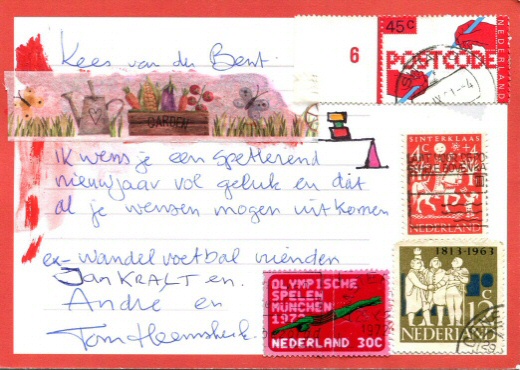 Kees van der Bent.
6
45c
POSTCODE
NEDERLAND
GARDEN
Ik wens je een spetterend
nieuwjaar vol geluk en dat
al je wensen mogen uitkomen
SINTERKLAAS
4c +4
NEDERLAND
ex-wandelvoetbal vrienden
Jan KRALT en.
Andre en
Tom Heemskerk.
OLYMPISCHE
SPELEN
MÜNCHEN
1972
NEDERLAND 30C
1813-1963
12c
NEDERLAND